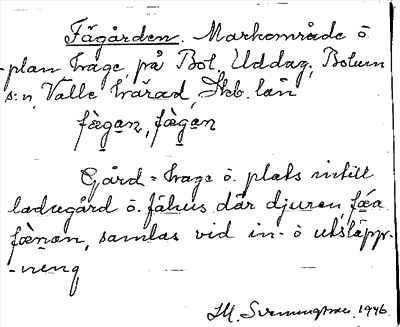 Fägården. Markområde o.
plan hage, på Bol, Uddag., Bolum
s:n, Valle härad, Skb. län
fægan, fægan
Gård = hage o. plats intill
ladugård o. fähus där djuren, fæa
fænan, samlas vid in- o utsläpp-
-ning
1946